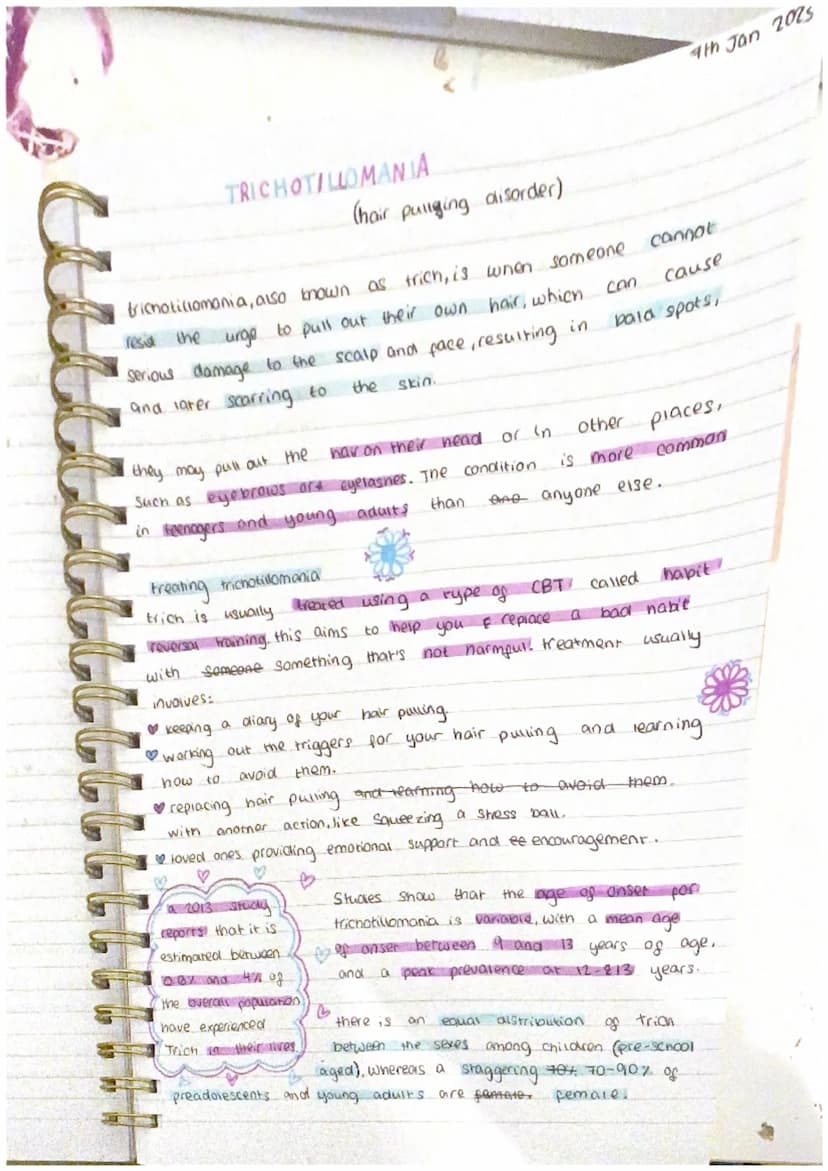 9th Jan 2025
TRICHOTILLOMANIA
(hair pulling disorder)
trichotillomania, also known as trich, is when someone cannot
resist the urge to pull out their own hair, which can cause
serious damage to the scalp and face, resulting in bald spots,
and later scarring to the skin.
they may pull out the hair on their head or in other places,
such as eyebrows or eyelashes. The condition is more common
in teenagers and young adults than anyone else.
treating trichotillomania
trich is usually treated using a type of CBT called habit
reversal training. this aims to help you replace a bad habit
with someone something that's not harmful. treatment usually
involves:
keeping a diary of your hair pulling.
working out the triggers for your hair pulling and learning
how to avoid them.
replacing hair pulling and learning how to avoid them.
with another action, like squeezing a stress ball.
loved ones providing emotional support and encouragement.
a 2013 study
reports that it is
estimated between
0.6% and 4% of
the overall population
have experienced
Trich in their lives.
Studies show that the age of onset for
trichotillomania is variable, with a mean age
of onset between 9 and 13 years of age,
and a peak prevalence at 12-13 years.
there is an equal distribution of trich
between the sexes among children (pre-school
aged), whereas a staggering 70% 70-90% of
preadolescents and young adults are female. female.